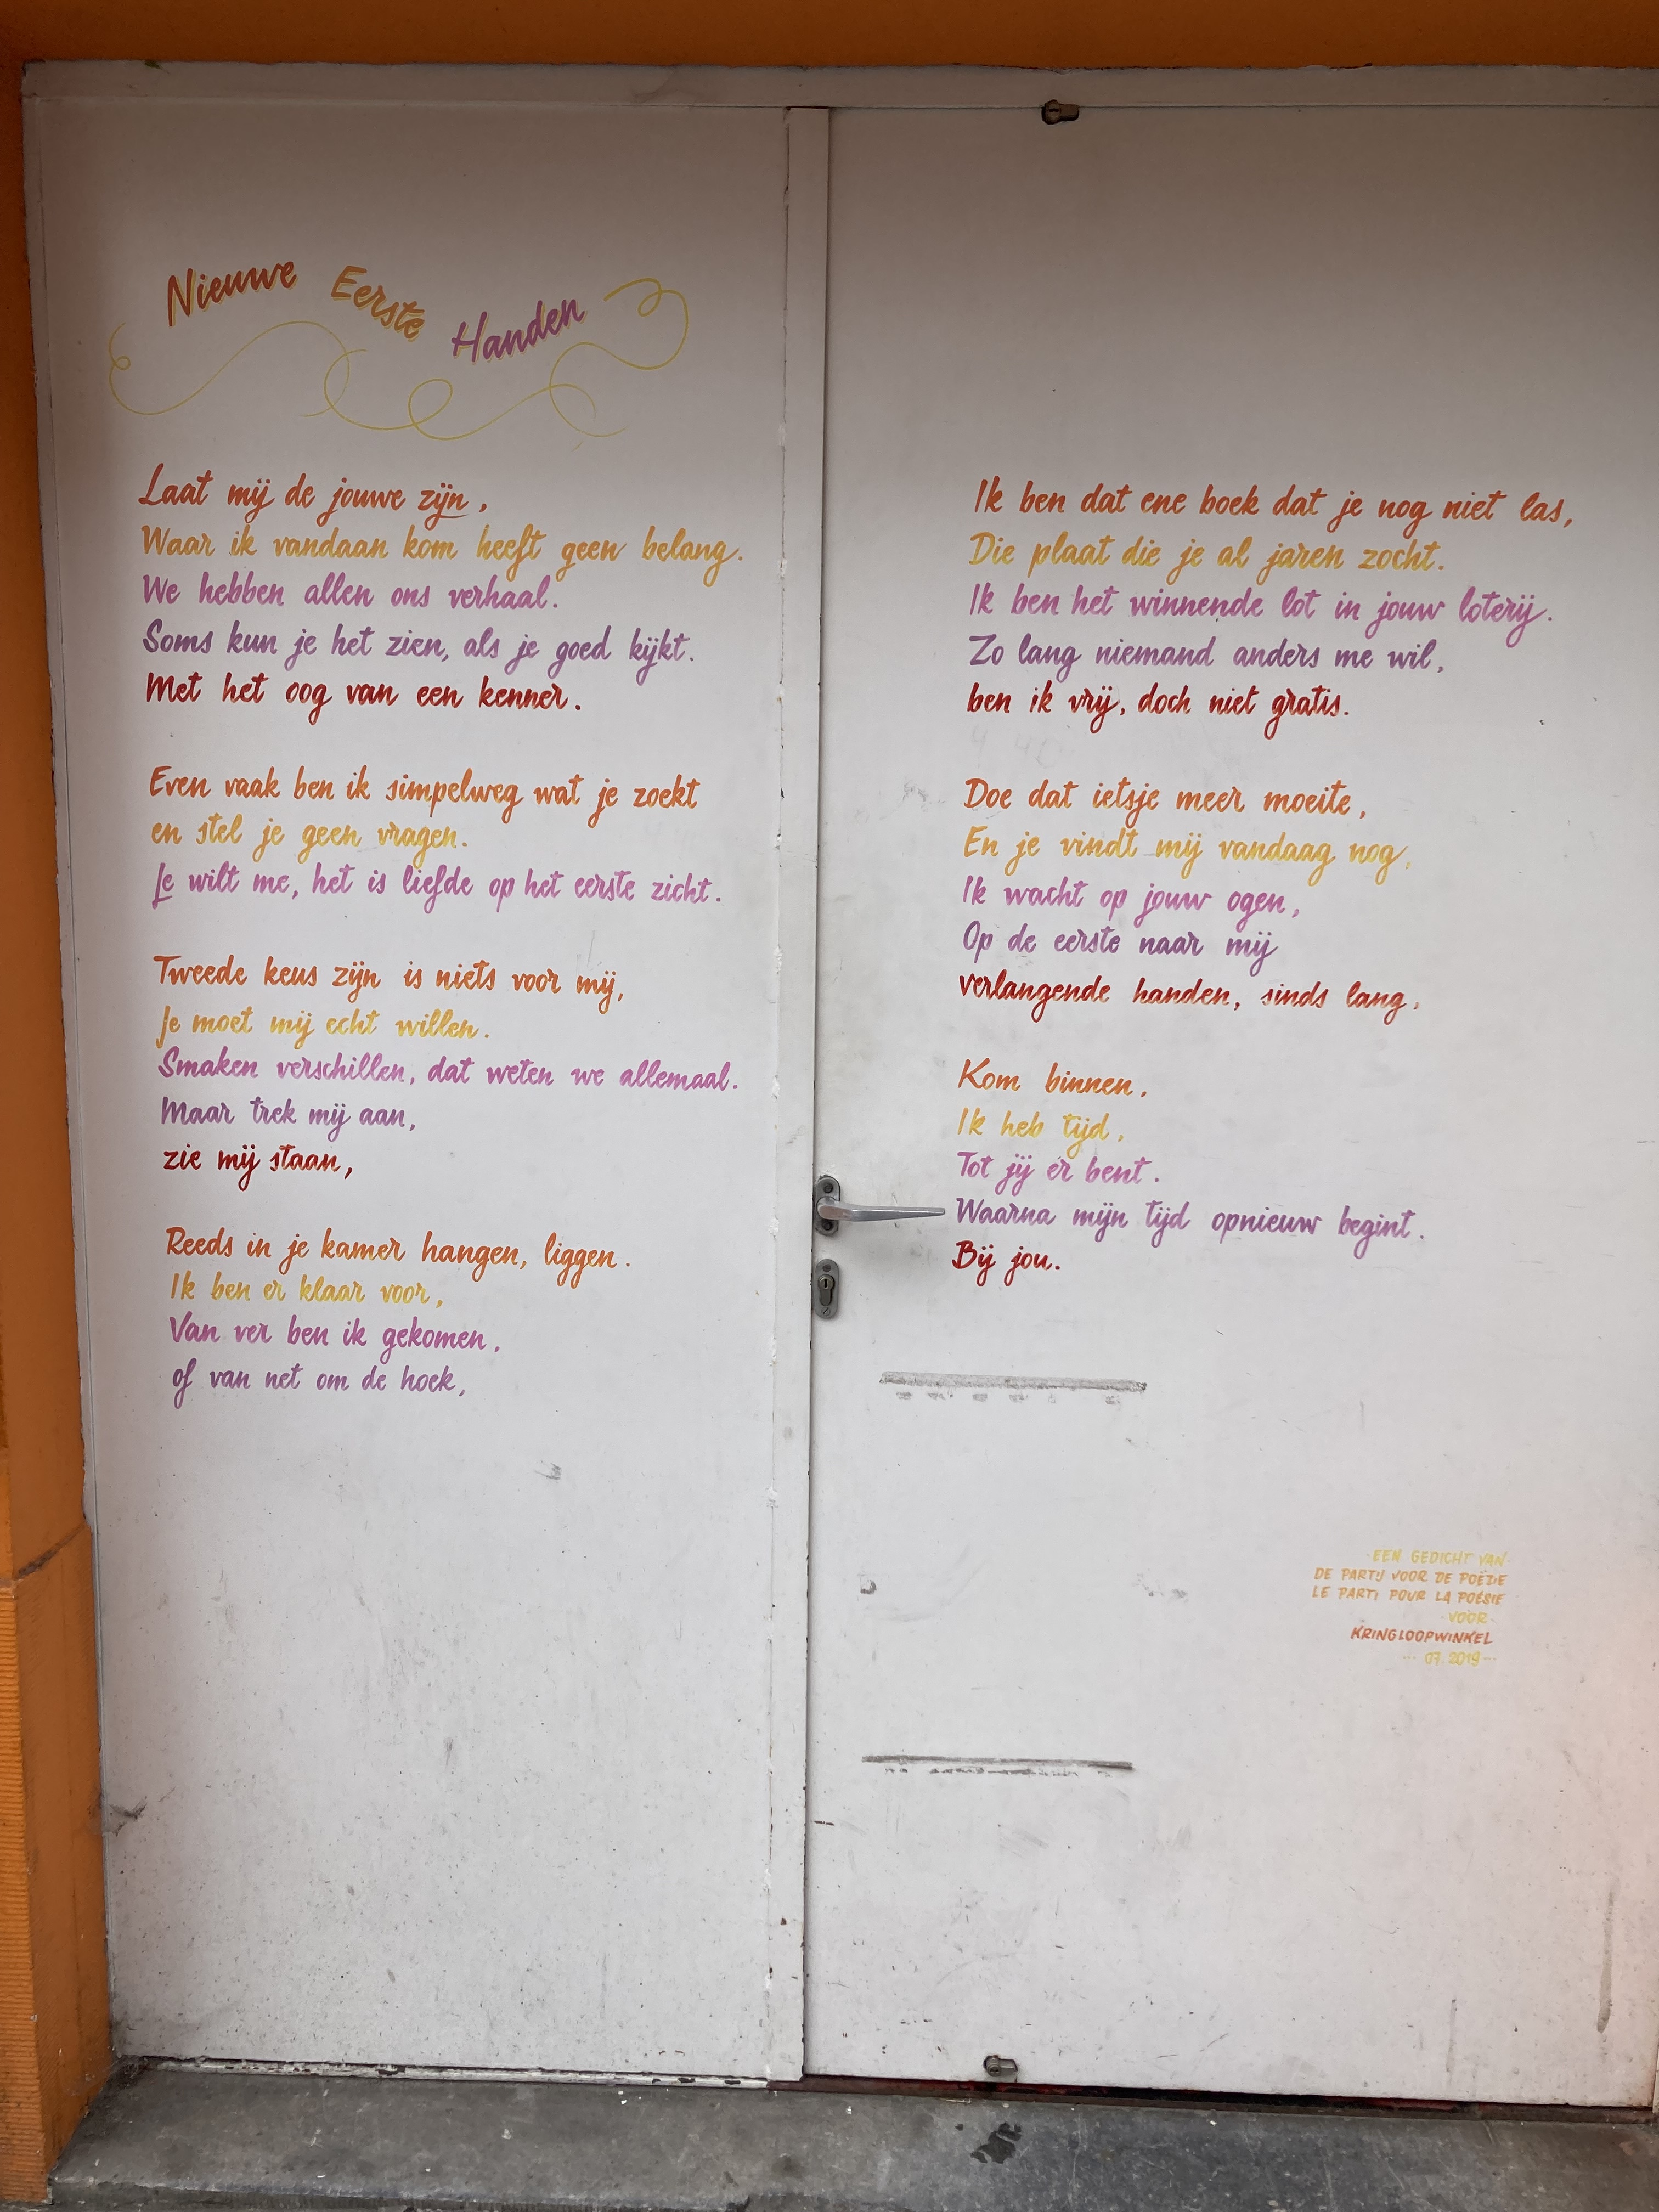 Nieuwe Eerste Handen
Laat mij de jouwe zijn,
Waar ik vandaan kom heeft geen belang.
We hebben allen ons verhaal.
Soms kun je het zien, als je goed kijkt.
Met het oog van een kenner.
Even vaak ben ik simpelweg wat je zoekt
en stel je geen vragen.
Je wilt me, het is liefde op het eerste zicht.
Tweede keus zijn is niets voor mij,
Je moet mij echt willen.
Smaken verschillen, dat weten we allemaal.
Maar trek mij aan,
zie mij staan,
Reeds in je kamer hangen, liggen.
Ik ben er klaar voor,
Van ver ben ik gekomen,
of van net om de hoek,
Ik ben dat ene boek dat je nog niet las,
Die plaat die je al jaren zocht.
Ik ben het winnende lot in jouw loterij.
Zo lang niemand anders me wil,
ben ik vrij, doch niet gratis.
Doe dat ietsje meer moeite,
En je vindt mij vandaag nog,
Ik wacht op jouw ogen,
Op de eerste naar mij
verlangende handen, sinds lang,
Kom binnen,
Ik heb tijd,
Tot jij er bent.
Waarna mijn tijd opnieuw begint.
Bij jou.
·EEN GEDICHT VAN·
DE PARTIJ VOOR DE POËZIE
LE PARTI POUR LA POÉSIE
·VOOR·
KRINGLOOPWINKEL
··· 07.2019 ···